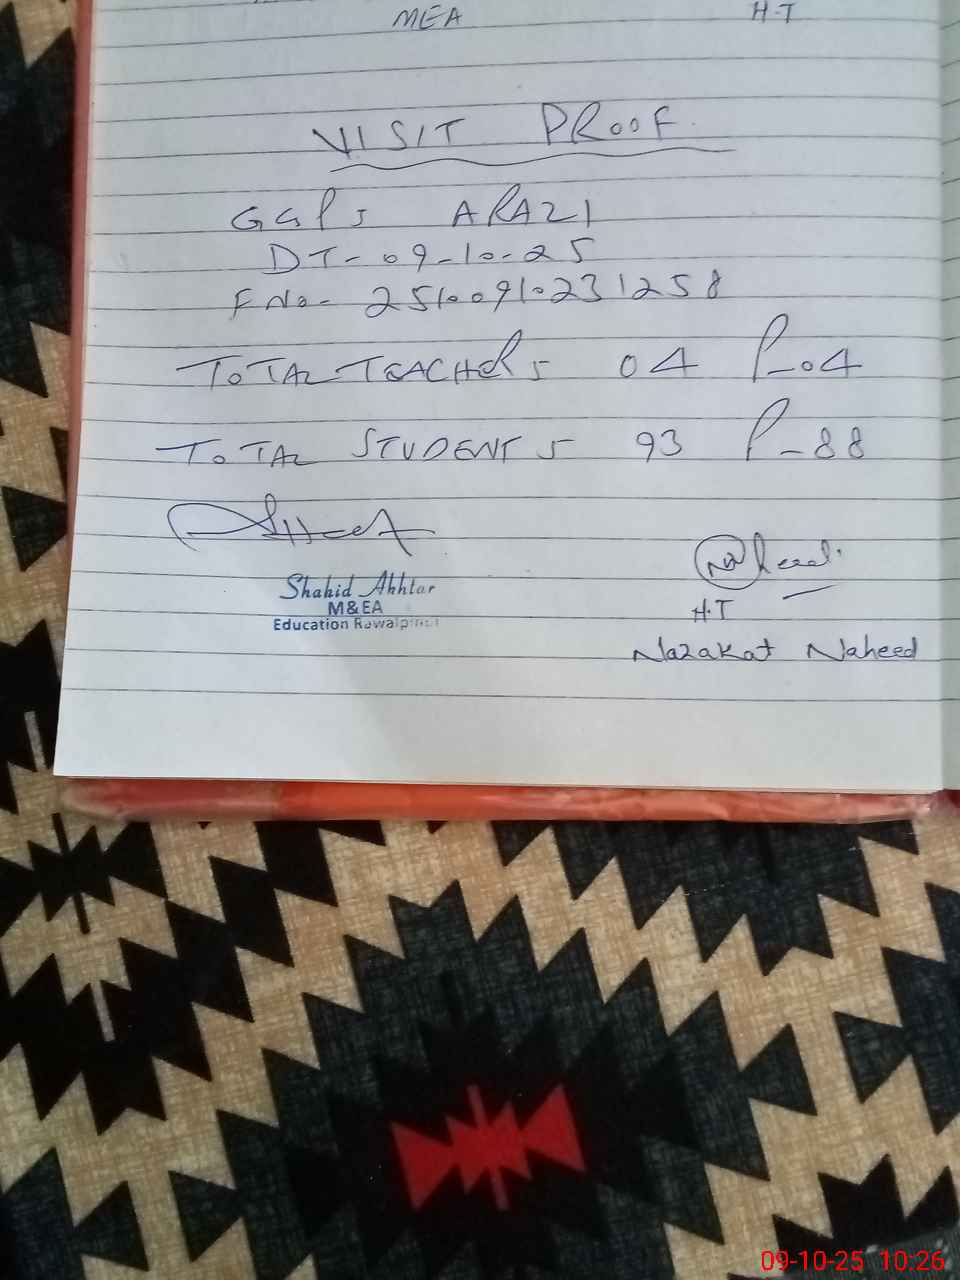 MEA H.T
VISIT PROOF
GGPS ARAZI
DT- 09-10-25
F No- 2510091023 1258
TOTAL TEACHERS 04 P-04
TOTAL STUDENTS 93 P-88
Shahid Akhtar
M&EA
Education Rawalpindi
H.T
Nazakat Naheed
09-10-25 10:26